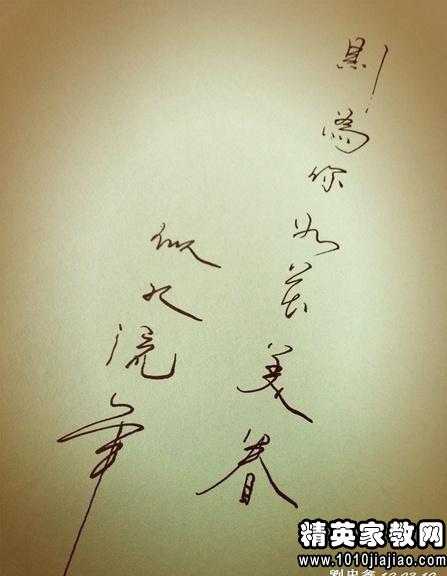 則為你如花美眷
似水流年
精英家教网
www.1010jiajiao.com